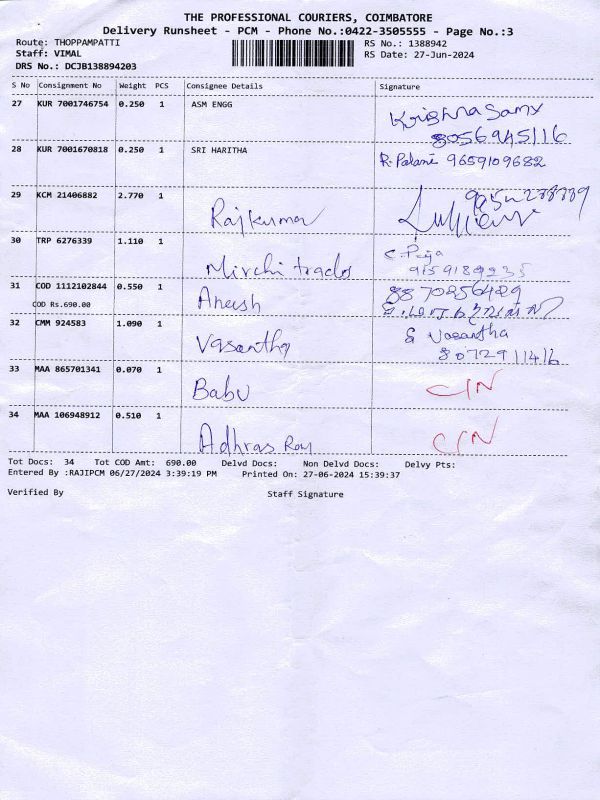 THE PROFESSIONAL COURIERS, COIMBATORE
Delivery Runsheet - PCM - Phone No.:0422-3505555 - Page No.:3
Route: THOPPAMPATTI
RS No.: 1388942
Staff: VIMAL
RS Date: 27-Jun-2024
DRS No.: DCJB138894203
S No Consignment No Weight PCS Consignee Details Signature
27 KUR 7001746754 0.250 1 ASM ENGG Krishnasamy
8056945116
28 KUR 7001670818 0.250 1 SRI HARITHA R. Palani 9659109682
29 KCM 21406882 2.770 1 Rajkumar
30 TRP 6276339 1.110 1 Mirchi trades C. Priya
9159189235
31 COD 1112102844 0.550 1 Aneesh 8870256429
COD Rs.690.00
32 CMM 924583 1.090 1 Vasantha S Vasantha
8072911416
33 MAA 865701341 0.070 1 Babu C/N
34 MAA 106948912 0.510 1 Adhras Roy C/N
Tot Docs: 34 Tot COD Amt: 690.00 Delvd Docs: Non Delvd Docs: Delvy Pts:
Entered By :RAJIPCM 06/27/2024 3:39:19 PM Printed On: 27-06-2024 15:39:37
Verified By Staff Signature